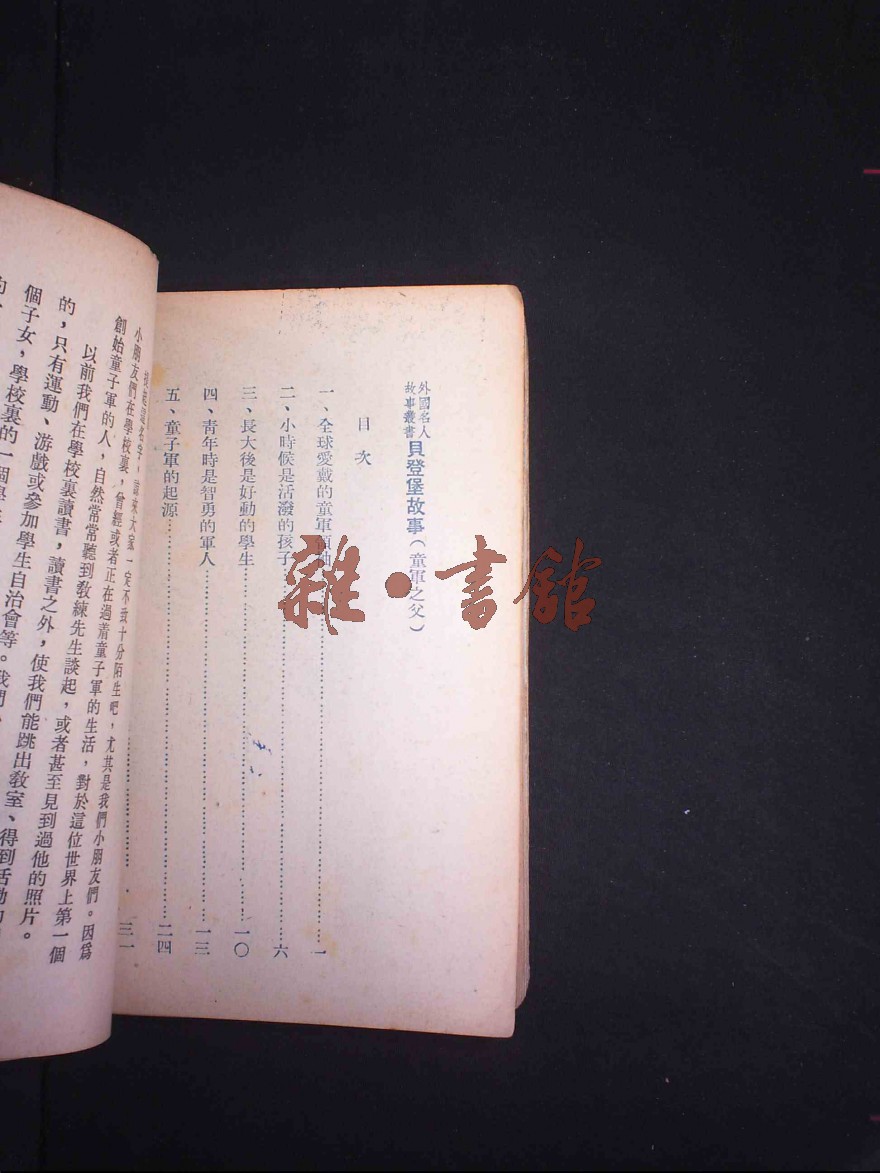 外國名人
故事叢書
貝登堡故事（童軍之父）
目次
一、全球愛戴的童軍領袖……一
二、小時候是活潑的孩子……六
三、長大後是好動的學生……一〇
四、靑年時是智勇的軍人……一三
五、童子軍的起源……二四
……三一
名字，諒來大家一定不致十分陌生吧，尤其是我們小朋友們。因爲
小朋友們在學校裏，曾經或者正在過着童子軍的生活，對於這位世界上第一個
創始童子軍的人，自然常常聽到敎練先生談起，或者甚至見到過他的照片。
以前我們在學校裏讀書，讀書之外，使我們能跳出敎室、得到活動
的，只有運動、游戲或參加學生自治會等。我們
個子女，學校裏的一個學生
的，
雜·書館